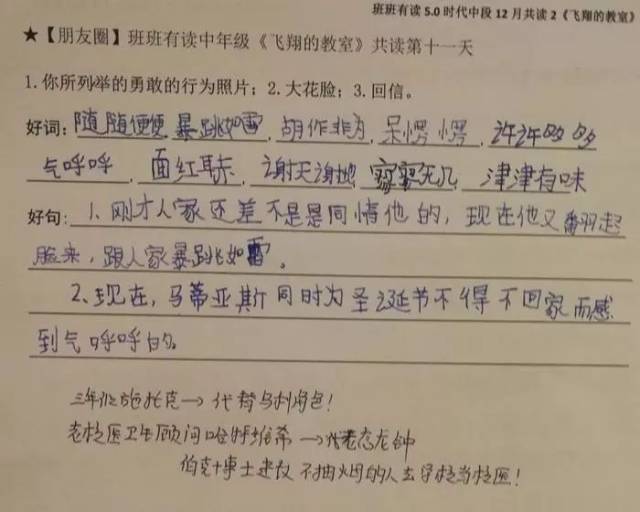 班班有读 5.0 时代中段 12 月共读 2《飞翔的教室》
★【朋友圈】班班有读中年级《飞翔的教室》共读第十一天
1.你所列举的勇敢的行为照片；2.大花脸；3.回信。
好词：随随便便 暴跳如雷 . 胡作非为 . 呆愣愣 . 许许多多
气呼呼 . 面红耳赤 . 谢天谢地 寥寥无几 津津有味
好句：1.刚才人家还差不是是同情他的，现在他又翻起
脸来，跟人家暴跳如雷。
2、现在，马蒂亚斯同时为圣诞节不得不回家而感
到气呼呼的。
三年级施托克→代替乌利角色！
老校医卫生顾问哈特维希→老态龙钟
伯克博士建议不抽烟的人去学校当校医！